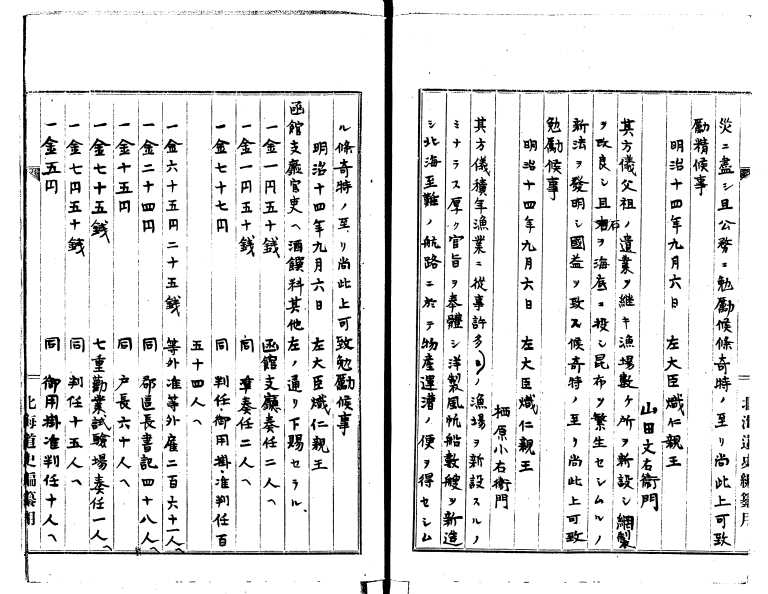 災ニ盡シ且公務ニ勉勵候條奇特ノ至リ尚此上可致
勵精候事
明治十四年九月六日　左大臣熾仁親王
山田文右衞門
其方儀父祖ノ遺業ヲ継キ漁場數ケ所ヲ新設シ網製
ヲ改良シ且石ヲ海底ニ投シ昆布ヲ繁生セシムルノ
新法ヲ發明シ國益ヲ致ス候奇特ノ至リ尚此上可致
勉勵候事
明治十四年九月六日　左大臣熾仁親王
栖原小右衞門
其方儀積年漁業ニ從事許多ノ漁場ヲ新設スルノ
ミナラス厚ク官旨ヲ奉體シ洋製風帆船數艘ヲ新造
シ北海至難ノ航路ニ於テ物産運漕ノ便ヲ得セシム
北海道史編纂用
ル條奇特ノ至リ尚此上可致勉勵候事
明治十四年九月六日　左大臣熾仁親王
函館支廳官吏ヘ酒饌料其他左ノ通リ下賜セラル
一金一円五十銭　函館支廳奏任二人ヘ
一金一円五十銭　同　奏任二人ヘ
一金七十七円　同　判任御用掛准判任百
五十四人ヘ
一金六十五円二十五銭　等外准等外雇二百六十一人ヘ
一金二十四円　同　郡區長書記四十八人ヘ
一金十五円　同　戸長六十人ヘ
一金七十五銭　七重勸業試驗場奏任一人ヘ
一金七円五十銭　同　判任十五人ヘ
一金五円　同　御用掛准判任十人ヘ
北海道史編纂用